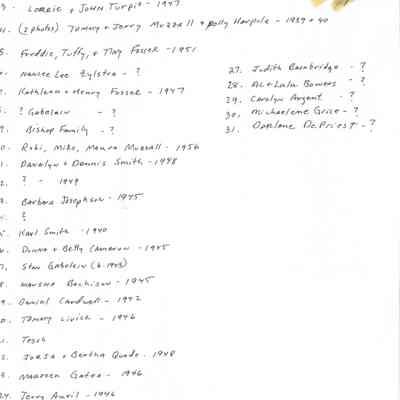 3. Lorrie + John Turpit - 1947
11. (2 photos) Tommy + Jerry Muzzall + Polly Harpole - 1939 + 40
5. Freddie, Tuffy, + Tiny Fosser - 1951
Nancee Lee Zylstra - ?
Kathleen + Henry Fosser - 1947
? Gabelein - ?
9. Bishop Family - ?
0. Robi, Mike, Maura Muzzall - 1956
1. Darolyn + Dennis Smith - 1948
2. ? - 1949
3. Barbara Josephson - 1945
?
Karl Smith - 1940
Donna + Betty Cameron - 1945
7. Stan Gabelein (b. 1943)
8. Marsha Bachison - 1945
9. Daniel Cardwell - 1942
0. Tommy - 1946
1. Tesch
2. + Bertha Quade - 1948
3. Maureen - 1946
24. Jerry Avril - 1946
27. Judith Bainbridge - ?
28. Al + Lola Bowers - ?
29. Carolyn Argent - ?
30. Michaelene Grice - ?
31. DePriest - ?